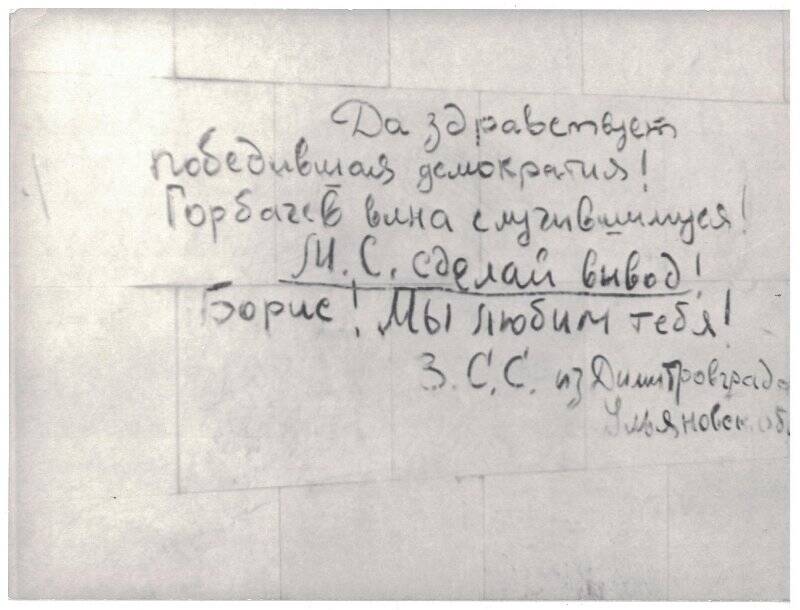 Да здравствует
победившая демократия!
Горбачев вина случившимуся!
М.С. сделай вывод!
Борис! Мы любим тебя!
З.С.С. из Димитровграда
Ульяновск.об.